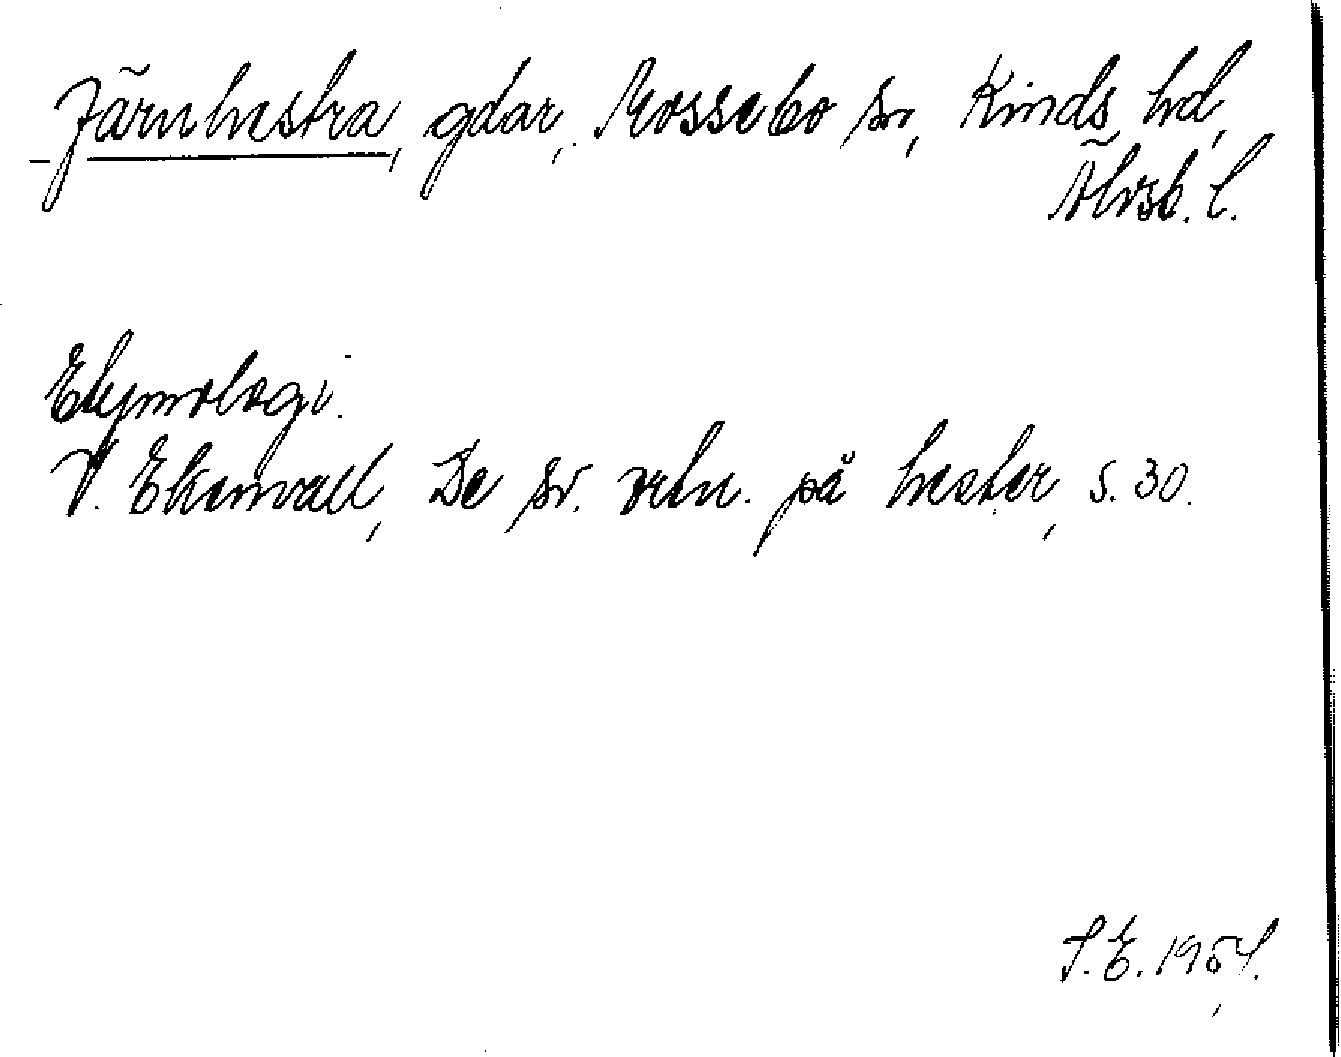 Järnhestra, gdar, Mossebo sn, Kinds hd,
Älvsb. l.
Etymologi.
V. Ekenvall, De sv. ortn. på hester, s. 30.
S.E. 1954.